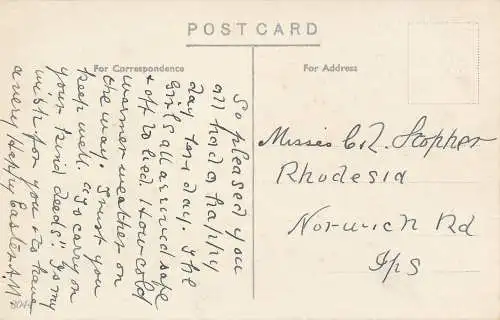 POST CARD
For Correspondence
For Address
So pleased you
all had a happy
day to-day. The
girls all arrived safe
& off to bed. How cold
warmer weather on
the way. Trust you
keep well. "To carry on
your kind deeds". Is my
wish for you & to have
a very Happy Easter A.M
Misses C. L. Stopher
Rhodesia
Norwich Rd
Ips